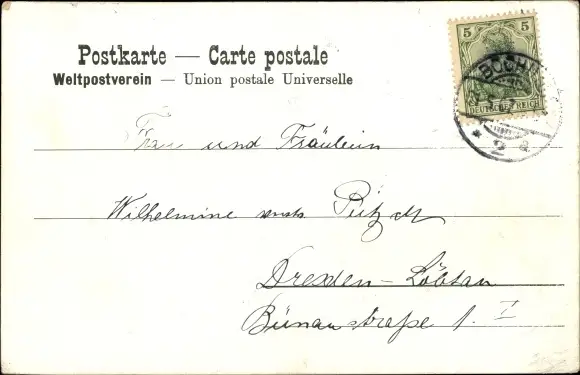 Postkarte — Carte postale
Weltpostverein — Union postale Universelle
5 5
DEUTSCHES REICH
BOCH
* 2 a
Frau und Fräulein
Wilhelmine
Dresden-Löbtau
Bünaustraße 1. I